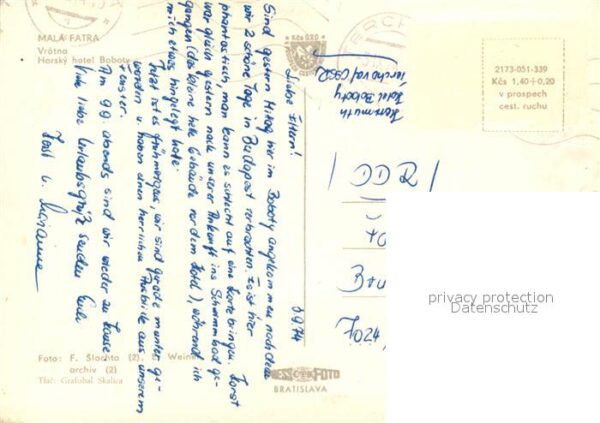 MALÁ FATRA
Vrátna
Horský hotel Boboty
Kčs 0,20
2173-051-339
Kčs 1,40+0,20
v prospech
cest. ruchu
Hotel Boboty
Terchova/CSSR
3.9.74
Liebe Eltern!
Sind gestern Mittag hier im Boboty angekommen nachdem
wir 2 schöne Tage in Budapest verbrachten. Es ist hier
phantastisch, man kann es schlecht auf eine Karte bringen. Horst
war gleich gestern nach unserer Ankunft ins Schwimmbad ge-
gangen (das kleine helle Gebäude vor dem Hotel), während ich
mich etwas hingelegt hatte.
Jetzt ist es frühmorgens, wir sind gerade munter ge-
worden u. haben einen herrlichen Ausblick aus unserem
Fenster.
Am 9.9. abends sind wir wieder zu Hause.
Viele liebe Urlaubsgrüße senden Euch
Horst u. Marianne
Foto: F. Šlachta (2), Weiner
archív (2)
Tlač: Grafobal Skalica
PRESSFOTO
BRATISLAVA
privacy protection
Datenschutz